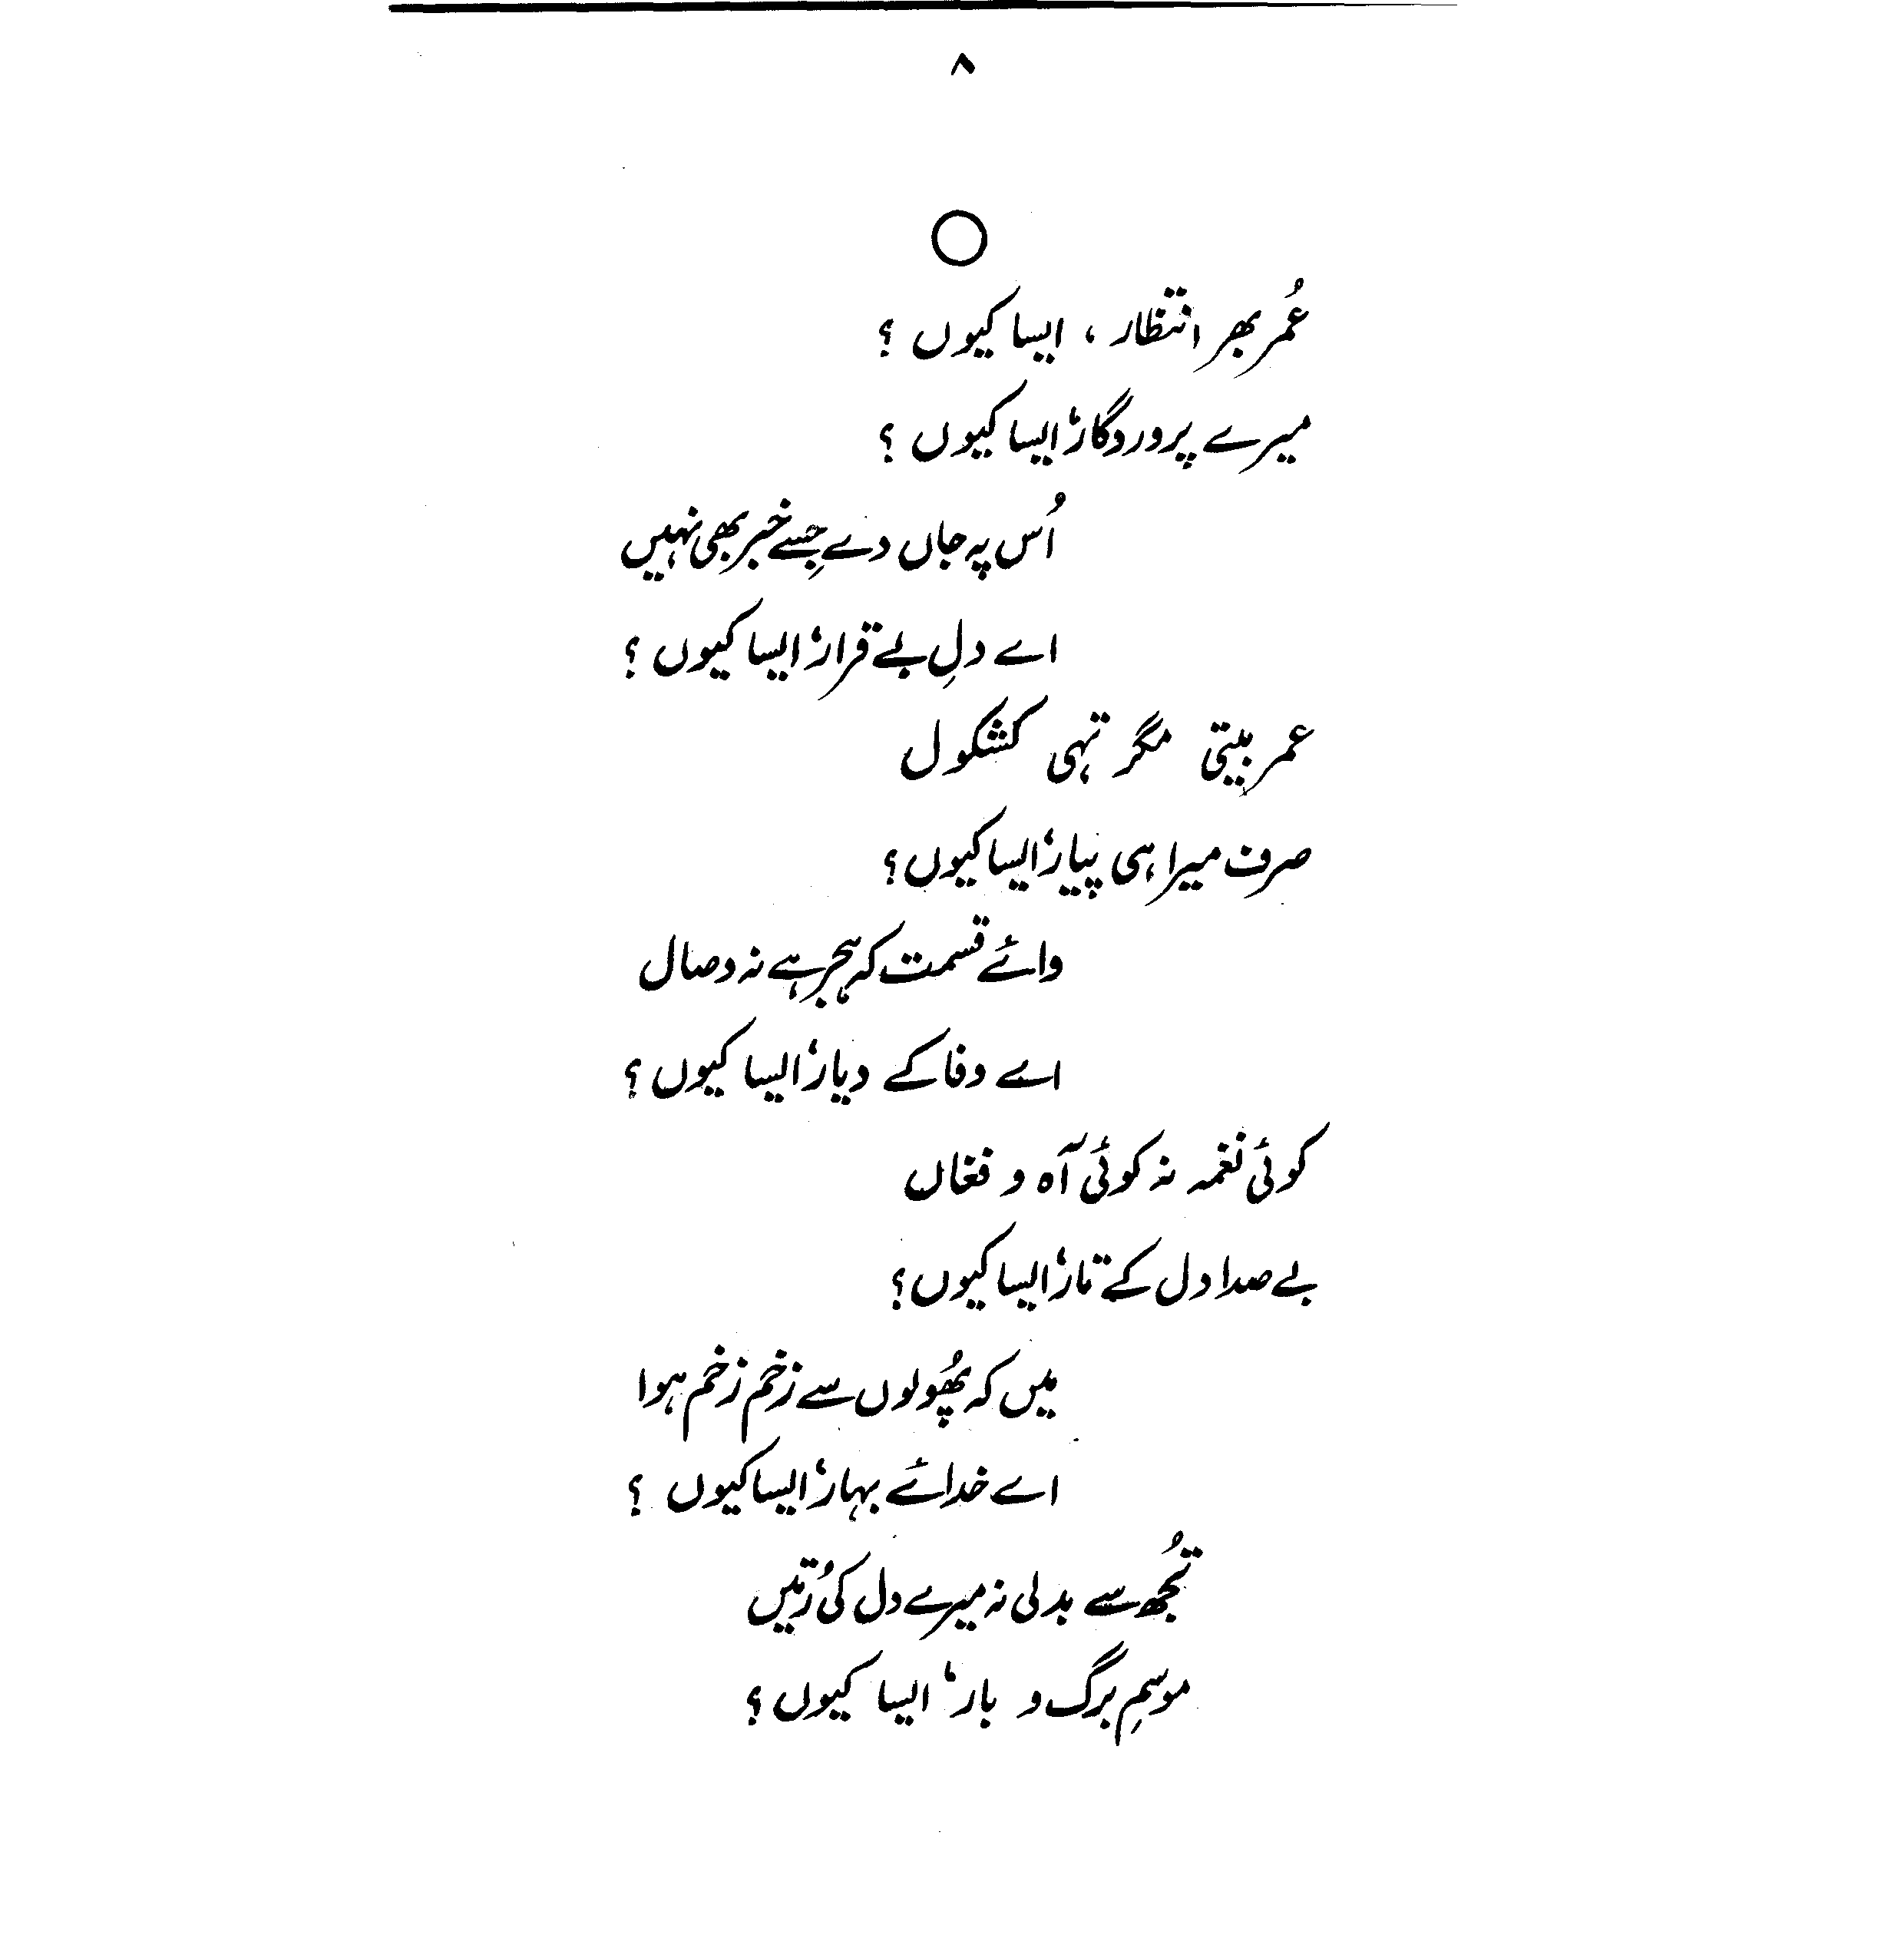 ۸
عُمر بھر انتظار، ایسا کیوں ؟
میرے پروردگار، ایسا کیوں ؟
اُس پہ جاں دے جِسے خبر بھی نہیں
اے دلِ بے قرار، ایسا کیوں ؟
عمر بیتی مگر تہی کشکول
صرف میرا ہی پیار، ایسا کیوں؟
وائے قسمت کہ ہجر ہے نہ وصال
اے وفا کے دیار، ایسا کیوں ؟
کوئی نغمہ نہ کوئی آہ و فغاں
بے صدا دل کے تار، ایسا کیوں؟
میں کہ پھُولوں سے زخم زخم ہوا
اے خدائے بہار، ایسا کیوں ؟
تُجھ سے بدلی نہ میرے دل کی رُتیں
موسمِ برگ و بار، ایسا کیوں ؟